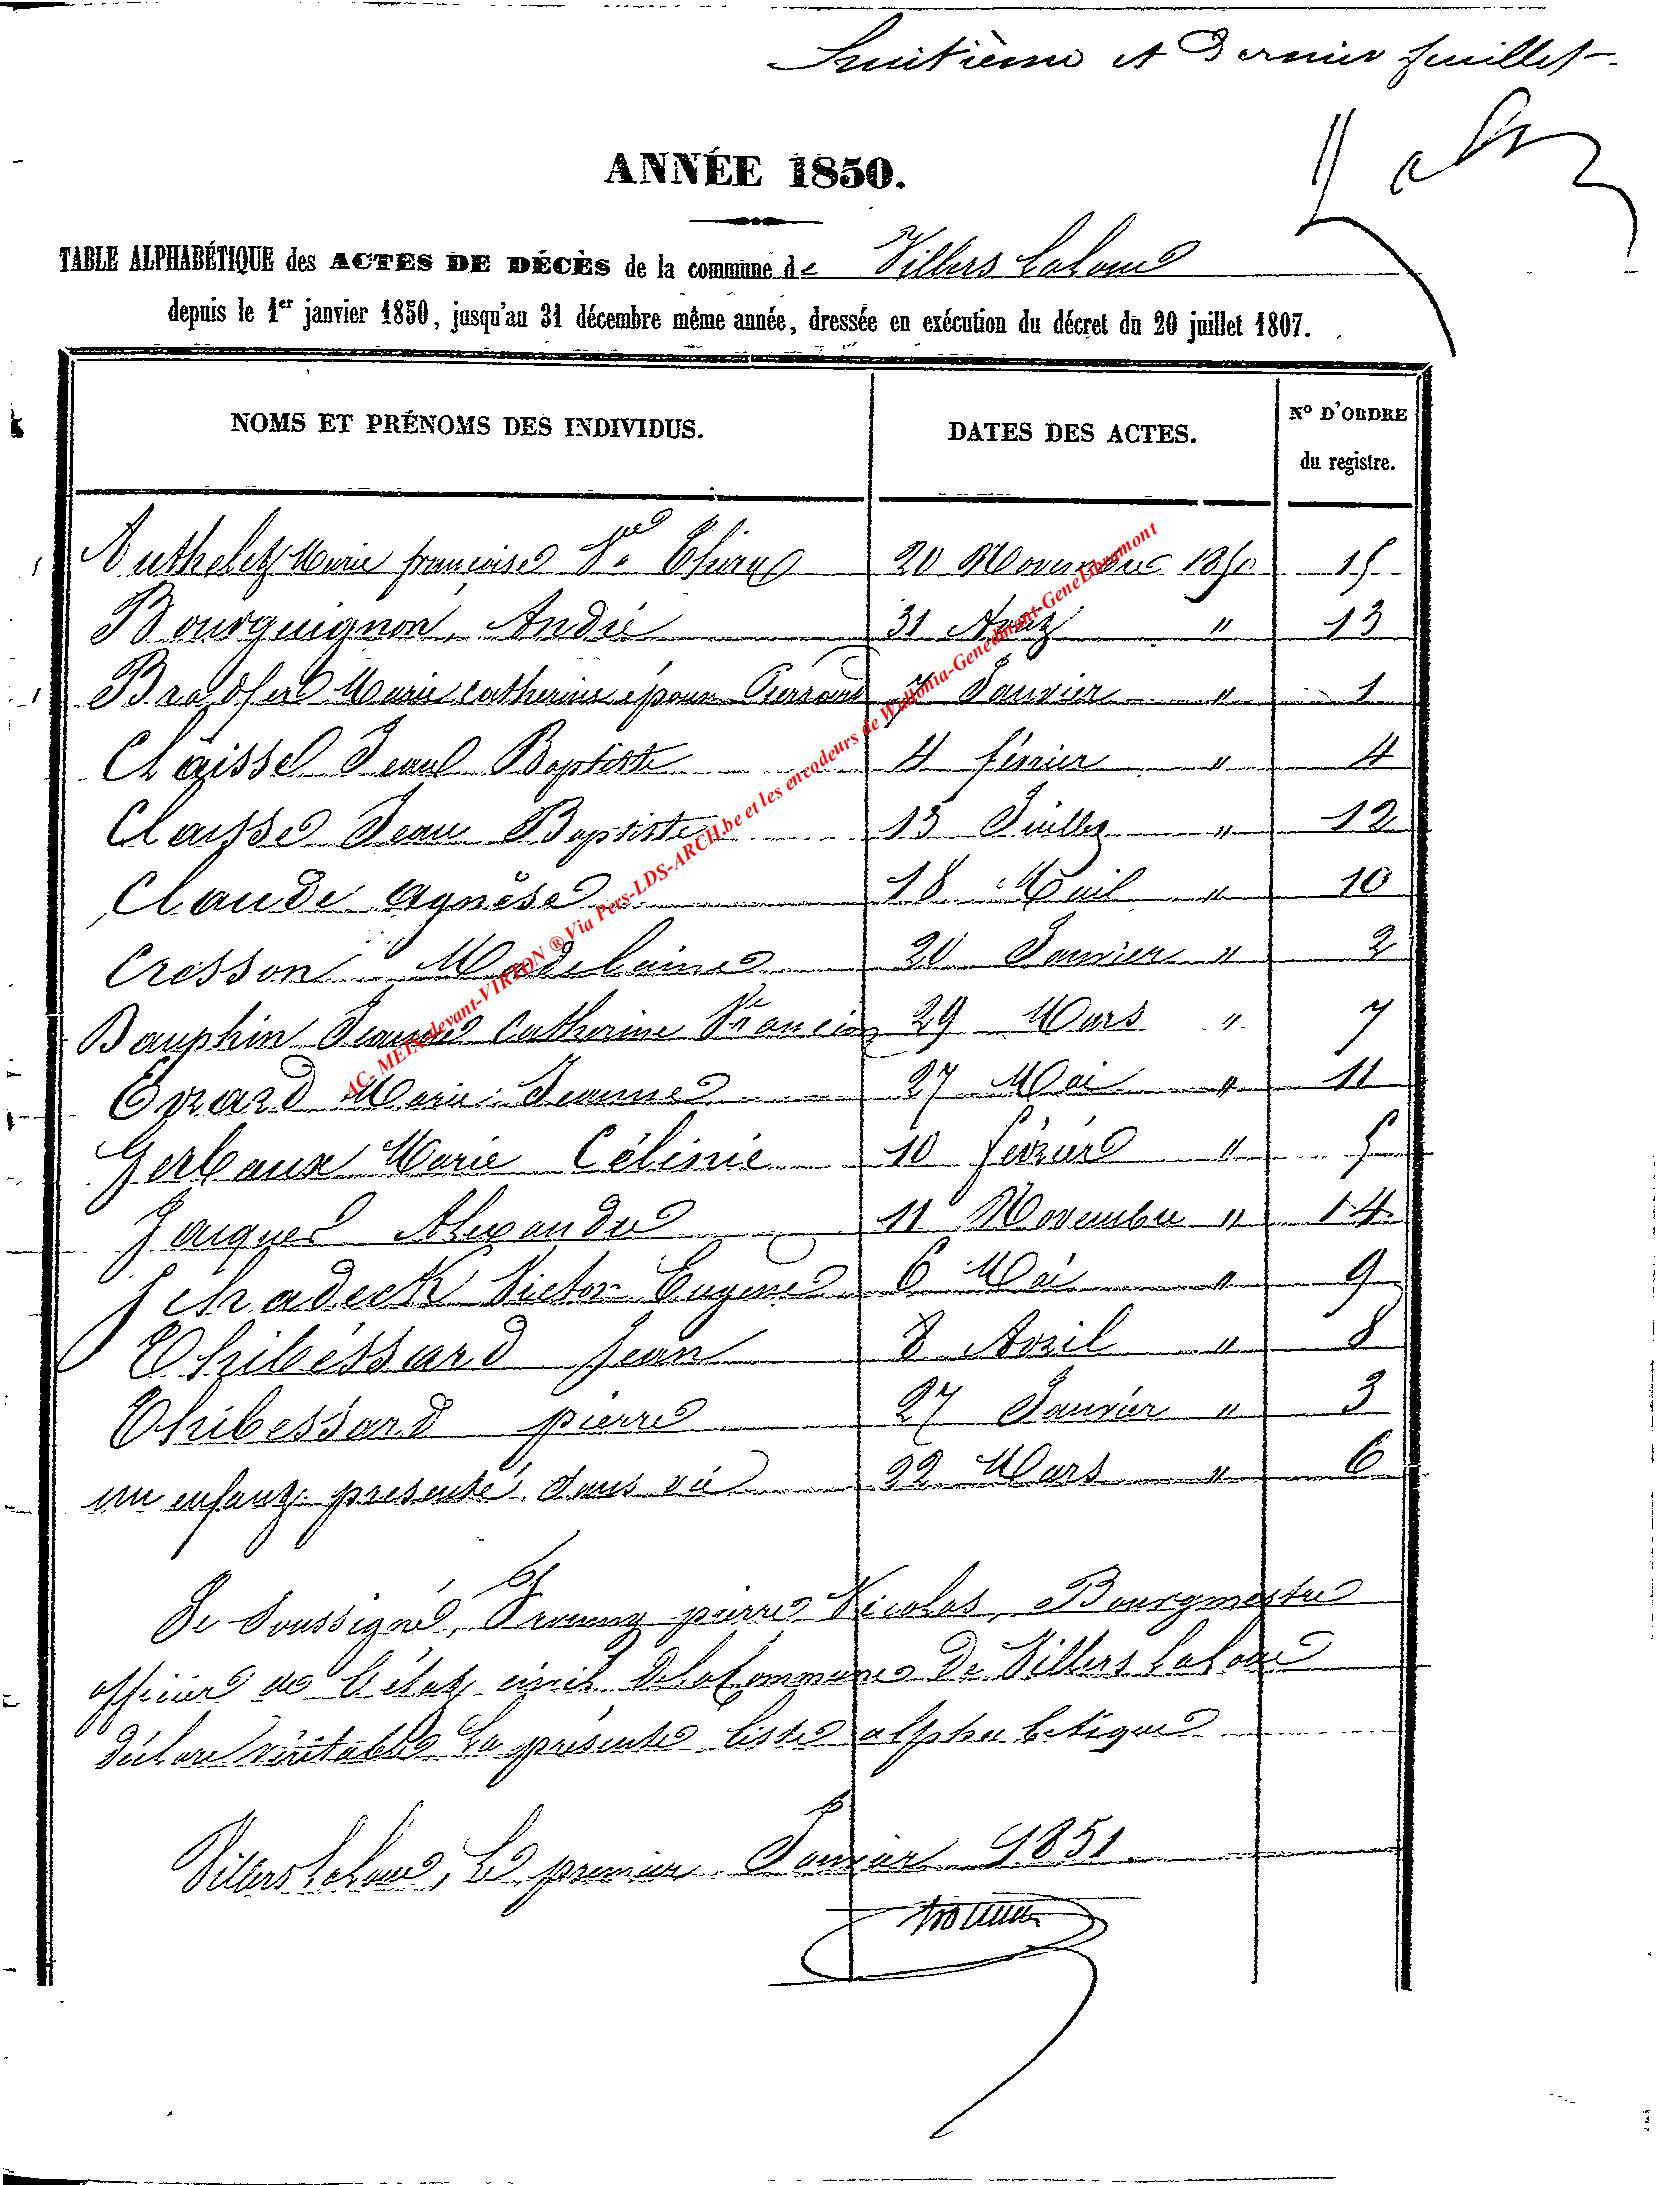 huitième et dernier feuillet
ANNÉE 1850.
TABLE ALPHABÉTIQUE des ACTES DE DÉCÈS de la commune de Villers la Loue
depuis le 1er janvier 1850, jusqu'au 31 décembre même année, dressée en exécution du décret du 20 juillet 1807.
NOMS ET PRÉNOMS DES INDIVIDUS. DATES DES ACTES. N° D'ORDRE
du registre.
Authelet Marie françoise Ve 20 Novembre 1850 15
Bourguignon, André 31 Août " 13
Bradfer Marie Catherine épouse Pierrard 7 Janvier " 1
Chaisse Jean Baptiste 4 février " 4
Claisse Jean Baptiste 13 Juillet " 12
Claude Agnèse 18 Mail " 10
Cresson Madelaine 20 Janvier " 2
Dauphin Jeanne Catherine Ve 29 Mars " 7
Evrard Marie Jeanne 27 Mai " 11
Gerbaux Marie Célinie 10 février " 5
Jacques Alexandre 11 Novembre " 14
Schadeck Victor Eugene 6 Mai " 9
Thibéssard Jean 8 Avril " 8
Thibessard pierre 27 Janvier " 3
un enfant présenté sans vie 22 Mars " 6
Je soussigné, pierre Nicolas, Bourgmestre
officier de l'état civil de la Commune de Villers la Loue
déclare véritable la présente liste alphabetique
Villers la Loue, le premier Janvier 1851
AC- MEIX-devant-VIRTON ® Via Pers-LDS-ARCH.be et les encodeurs de Wallonia-Genedinant-GeneLibramont